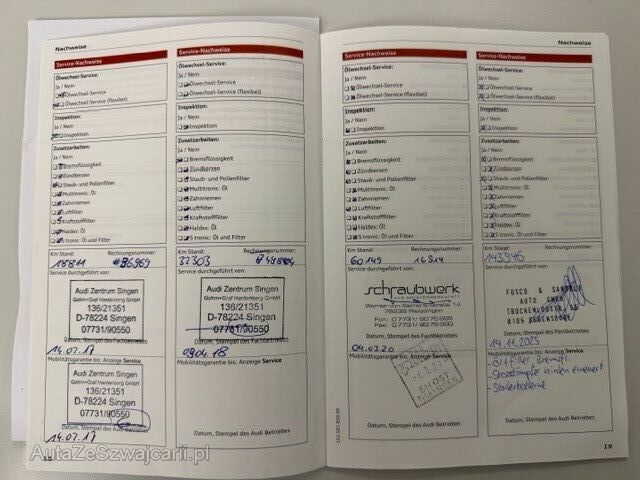 Nachweise
Service-Nachweise
Ölwechsel-Service:
Ja / Nein
Ölwechsel-Service
Ölwechsel-Service (flexibel)
Inspektion:
Ja / Nein
Inspektion
Zusatzarbeiten:
Ja / Nein
Bremsflüssigkeit
Zündkerzen
Staub- und Pollenfilter
Multitronic: Öl
Zahnriemen
Luftfilter
Kraftstofffilter
Haldex: Öl
S tronic: Öl und Filter
Km Stand: Rechnungsnummer:
Service durchgeführt von:
Audi Zentrum Singen
Gohm+Graf Hardenberg GmbH
136/21351
D-78224 Singen
07731/90550
Datum, Stempel des Fachbetriebes
14.07.17
Mobilitätsgarantie bis: Anzeige Service
Audi Zentrum Singen
Gohm+Graf Hardenberg GmbH
136/21351
D-78224 Singen
07731/90550
Datum, Stempel des Audi Betriebes
14.07.17
Service-Nachweise
Ölwechsel-Service:
Ja / Nein
Ölwechsel-Service
Ölwechsel-Service (flexibel)
Inspektion:
Ja / Nein
Inspektion
Zusatzarbeiten:
Ja / Nein
Bremsflüssigkeit
Zündkerzen
Staub- und Pollenfilter
Multitronic: Öl
Zahnriemen
Luftfilter
Kraftstofffilter
Haldex: Öl
S tronic: Öl und Filter
Km Stand: Rechnungsnummer:
32303
Service durchgeführt von:
Audi Zentrum Singen
Gohm+Graf Hardenberg GmbH
136/21351
D-78224 Singen
07731/90550
Datum, Stempel des Fachbetriebes
09.04.18
Mobilitätsgarantie bis: Anzeige Service
Datum, Stempel des Audi Betriebes
Service-Nachweise
Ölwechsel-Service:
Ja / Nein
Ölwechsel-Service
Ölwechsel-Service (flexibel)
Inspektion:
Ja / Nein
Inspektion
Zusatzarbeiten:
Ja / Nein
Bremsflüssigkeit
Zündkerzen
Staub- und Pollenfilter
Multitronic: Öl
Zahnriemen
Luftfilter
Kraftstofffilter
Haldex: Öl
S tronic: Öl und Filter
Km Stand: Rechnungsnummer:
60149 16914
Service durchgeführt von:
schraubwerk
Datum, Stempel des Fachbetriebes
04.03.20
Mobilitätsgarantie bis: Anzeige Service
Datum, Stempel des Audi Betriebes
Nachweise
Service-Nachweise
Ölwechsel-Service:
Ja / Nein
Ölwechsel-Service
Ölwechsel-Service (flexibel)
Inspektion:
Ja / Nein
Inspektion
Zusatzarbeiten:
Ja / Nein
Bremsflüssigkeit
Zündkerzen
Staub- und Pollenfilter
Multitronic: Öl
Zahnriemen
Luftfilter
Kraftstofffilter
Haldex: Öl
S tronic: Öl und Filter
Km Stand: Rechnungsnummer:
143946
Service durchgeführt von:
AUTO
8105 REGENSDORF
Datum, Stempel des Fachbetriebes
14.11.2023
Mobilitätsgarantie bis: Anzeige Service
hinten erneuert
- Starterbatterie
Datum, Stempel des Audi Betriebes
19
AutaZeSzwajcarii.pl